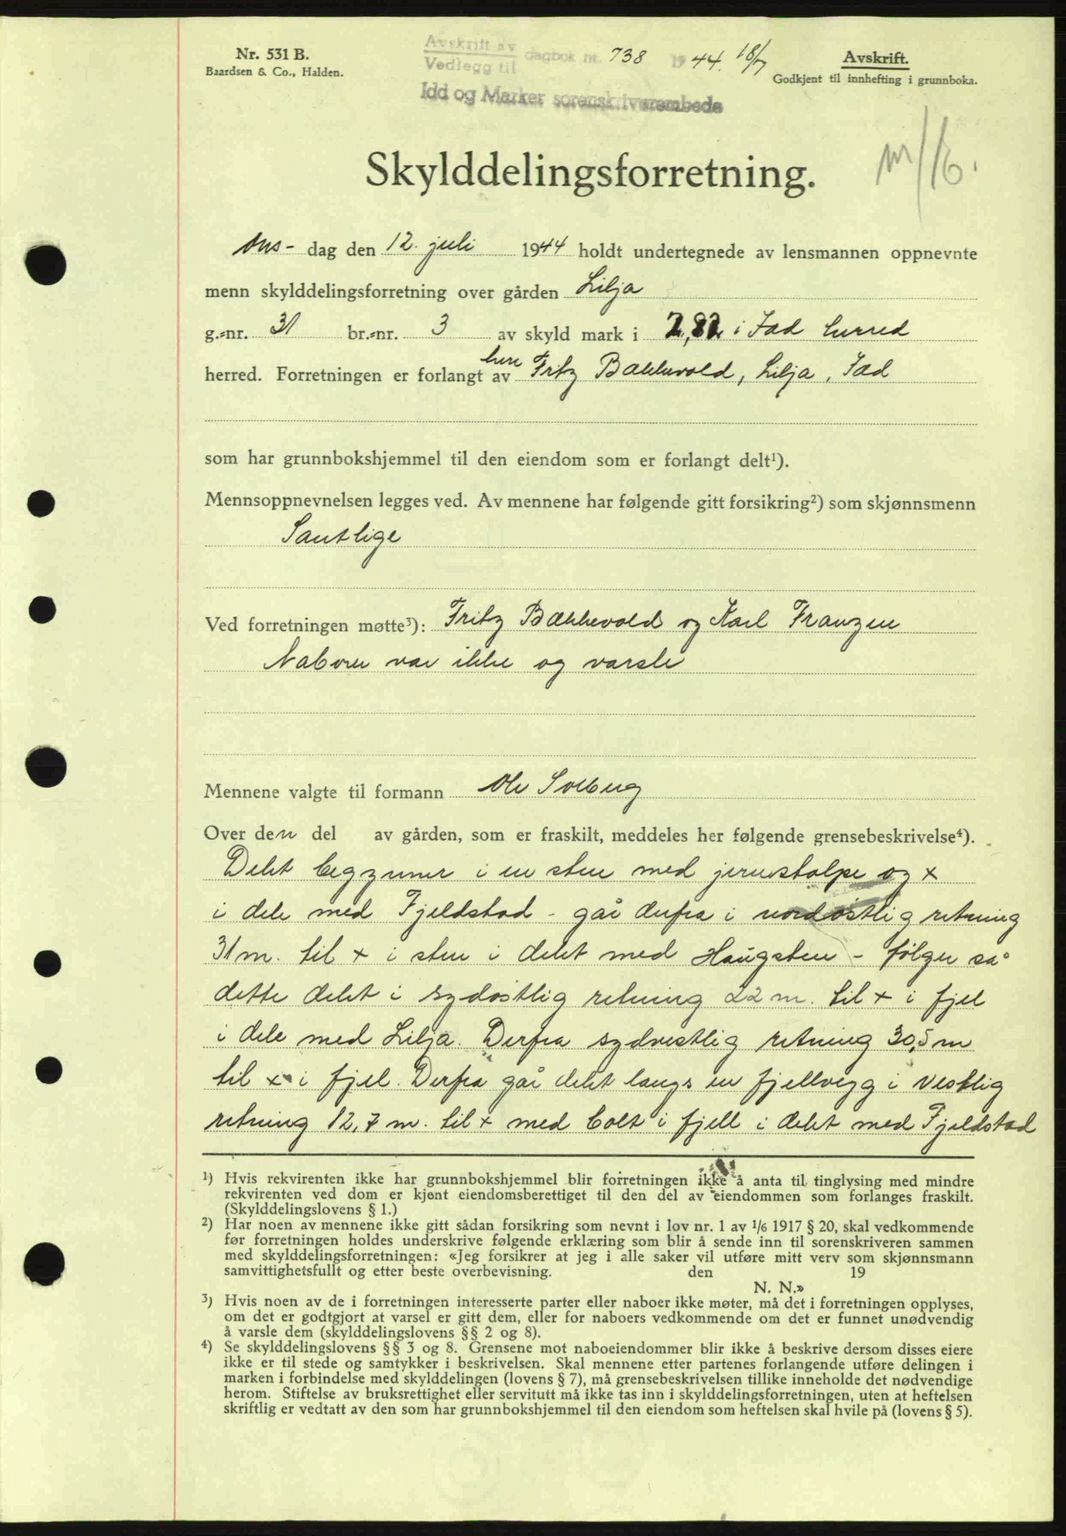 Nr. 531 B.
Baardsen & Co., Halden.
Avskrift av
Vedlegg til dagbok nr. 738 1944. 18/7
Idd og Marker sorenskriverembede
Avskrift.
Godkjent til innhefting i grunnboka.
Skylddelingsforretning.
m/16.
Ons- dag den 12. juli 1944 holdt undertegnede av lensmannen oppnevnte
menn skylddelingsforretning over gården Lilja
g.-nr. 31 br.-nr. 3 av skyld mark i 2,82 i Idd herred
herred. Forretningen er forlangt av herr Fritz Bækkevold, Lilja, Idd
som har grunnbokshjemmel til den eiendom som er forlangt delt¹).
Mennsoppnevnelsen legges ved. Av mennene har følgende gitt forsikring²) som skjønnsmenn
Samtlige
Ved forretningen møtte³): Fritz Bækkevold og Karl Franzen
Naboer var ikke og varsle
Mennene valgte til formann Ole Solberg
Over den del av gården, som er fraskilt, meddeles her følgende grensebeskrivelse⁴).
Delet begynner i en sten med jernstolpe og x
i dele med Fjeldstad - går derfra i nordøstlig retning
31 m. til x i sten i delet med Haugsten - følger så
dette delet i sydøstlig retning 22 m. til x i fjel
i dele med Lilja. Derfra sydvestlig retning 30,5 m
til x i fjel. Derfra går delet langs en fjellvegg i vestlig
retning 12,7 m. til x med bolt i fjell i delet med Fjeldstad
¹) Hvis rekvirenten ikke har grunnbokshjemmel blir forretningen ikke å anta til tinglysing med mindre
rekvirenten ved dom er kjent eiendomsberettiget til den del av eiendommen som forlanges fraskilt.
(Skylddelingslovens § 1.)
²) Har noen av mennene ikke gitt sådan forsikring som nevnt i lov nr. 1 av 1/6 1917 § 20, skal vedkommende
før forretningen holdes underskrive følgende erklæring som blir å sende inn til sorenskriveren sammen
med skylddelingsforretningen: «Jeg forsikrer at jeg i alle saker vil utføre mitt verv som skjønnsmann
samvittighetsfullt og etter beste overbevisning. den 19
N. N.»
³) Hvis noen av de i forretningen interesserte parter eller naboer ikke møter, må det i forretningen opplyses,
om det er godtgjort at varsel er gitt dem, eller for naboers vedkommende om det er funnet unødvendig
å varsle dem (skylddelingslovens §§ 2 og 8).
⁴) Se skylddelingslovens §§ 3 og 8. Grensene mot naboeiendommer blir ikke å beskrive dersom disses eiere
ikke er til stede og samtykker i beskrivelsen. Skal mennene etter partenes forlangende utføre delingen i
marken i forbindelse med skylddelingen (lovens § 7), må grensebeskrivelsen tillike inneholde det nødvendige
herom. Stiftelse av bruksrettighet eller servitutt må ikke tas inn i skylddelingsforretningen, uten at heftelsen
skriftlig er vedtatt av den som har grunnbokshjemmel til den eiendom som heftelsen skal hvile på (lovens § 5).